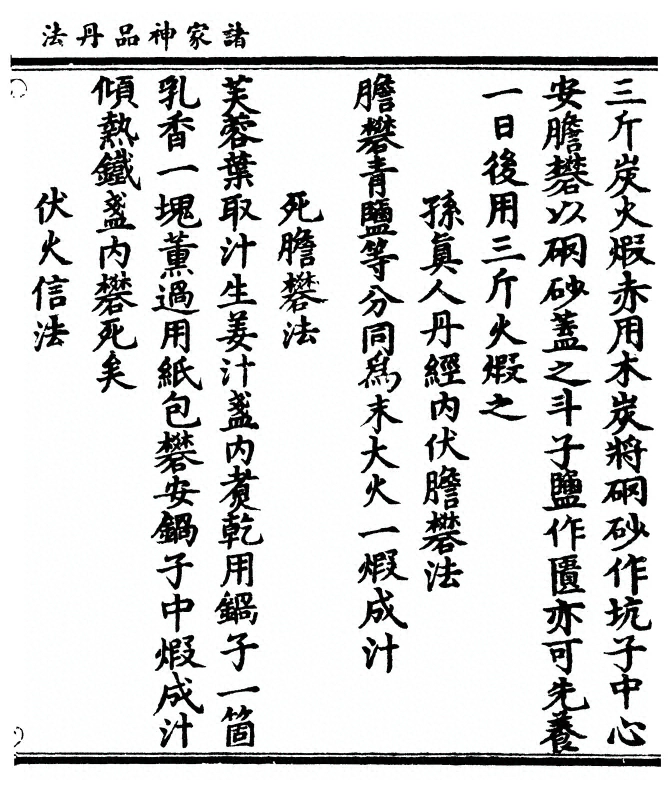 諸家神品丹法
三斤炭火煆赤用木炭將硇砂作坑子中心
安膽礬以硇砂蓋之斗子鹽作匱亦可先養
一日後用三斤火煆之
孫眞人丹經內伏膽礬法
膽礬青鹽等分同爲末大火一煆成汁
死膽礬法
芙蓉葉取汁生姜汁盞內煑乾用鍋子一箇
乳香一塊薰過用紙包礬安鍋子中煆成汁
傾熱鐵盞內礬死矣
伏火信法